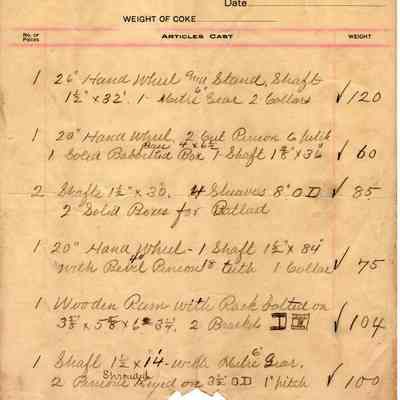 Date
WEIGHT OF COKE
No. of Pieces ARTICLES CAST WEIGHT
1 26" Hand Wheel and Stand, Shaft
1½" x 32". 1- Mitre 6" Gear 2 Collars √ 120
1 20" Hand Wheel, 2 Cut Pinion 6 pitch
4 x 6½
1 Solid Babbitted Box 1 Shaft 1⅞" x 36" √ 60
2 Shafts 1½" x 30. 4 Sheaves 8" O D √ 85
2 Solid Boxes for Ballast
1 20" Hand Wheel - 1 Shaft 1½" x 84"
with Bevel Pinion 18 teeth 1 Collar √ 75
1 Wooden Rum with Rack bolted on
x 6 2 Brackets √ 104
1 Shaft 1½ x 14 - with Mitre 6" Gear.
Shrouded
2 Pinions Keyed on 3½ O.D 1" pitch √ 100